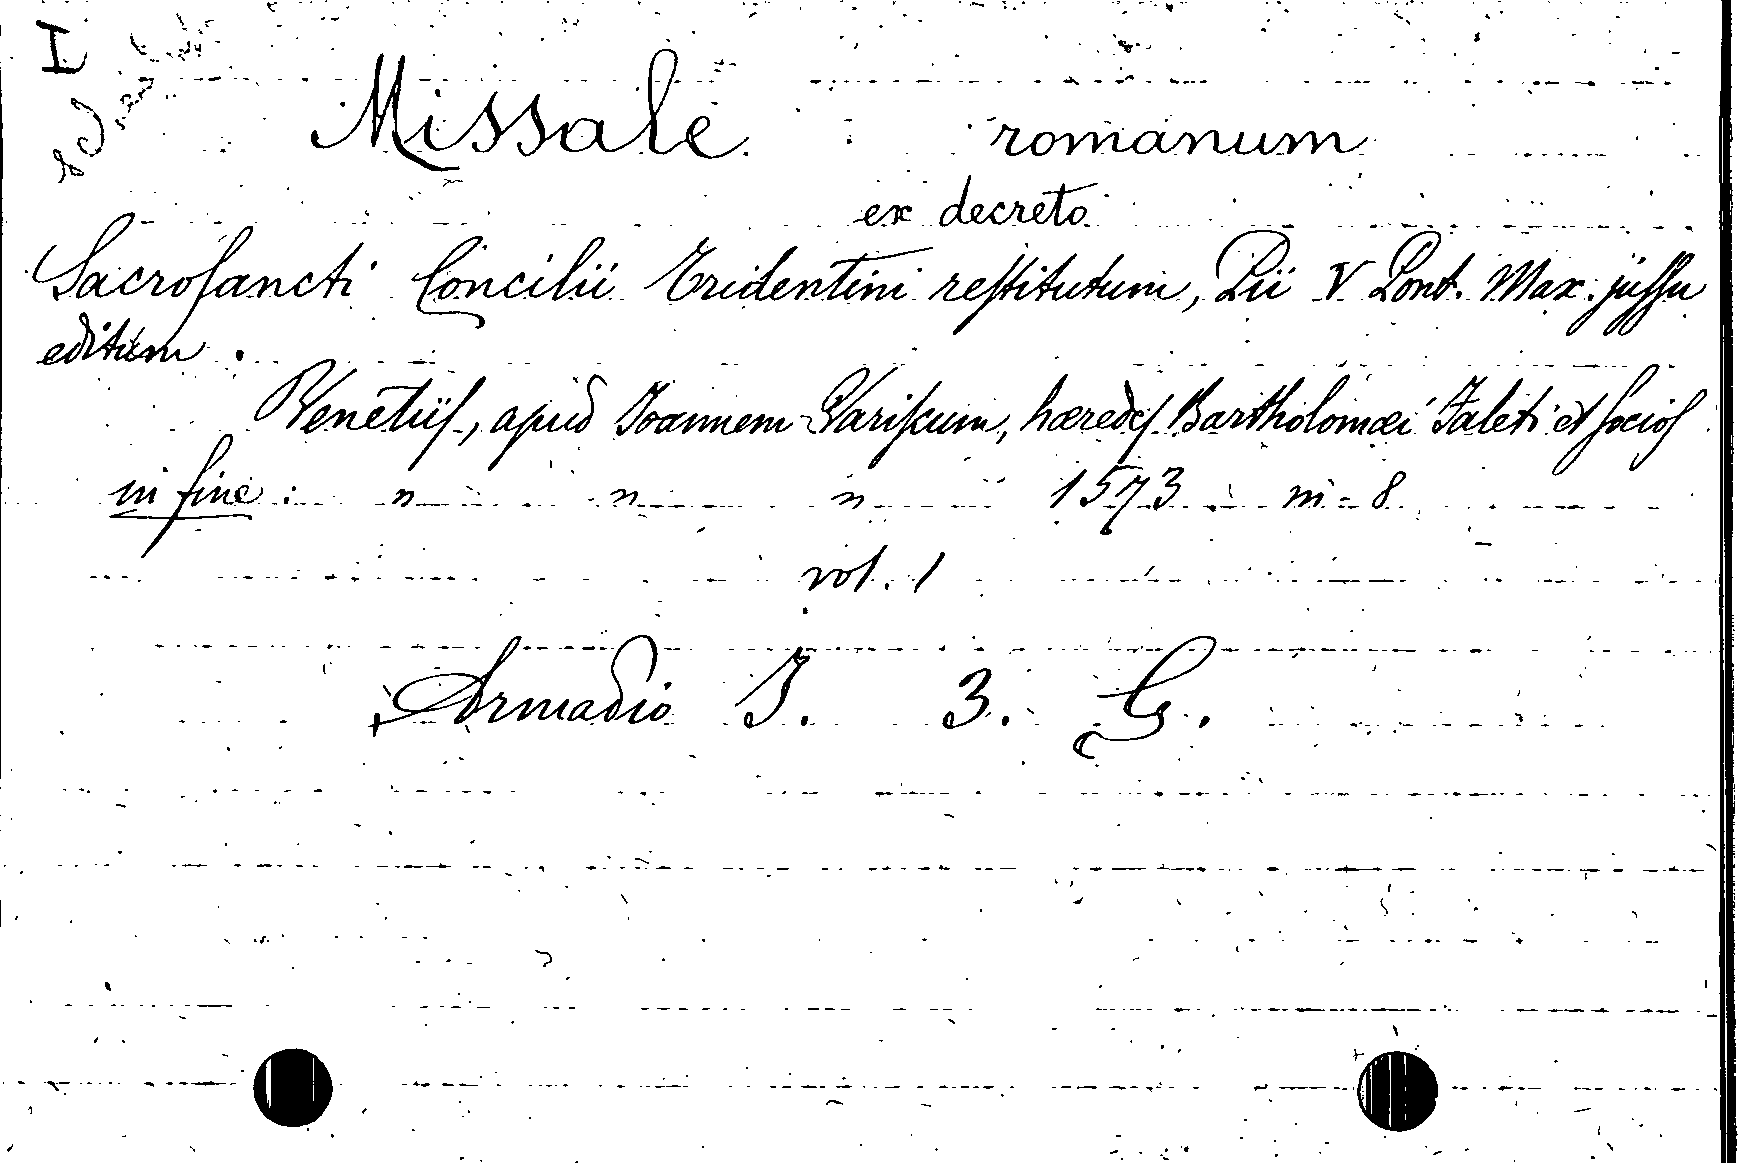 I
Missale romanum
ex decreto
Sacroſancti Concilii Tridentini reſtitutum, Pii V Pont. Max. juſſu
editum.
Venetiiſ, apud Joannem Variſcum, hæredeſ Bartholomæi Faleti et ſocioſ
in fine: " " " 1573 in-8
vol. 1
Armadio I. 3. G.